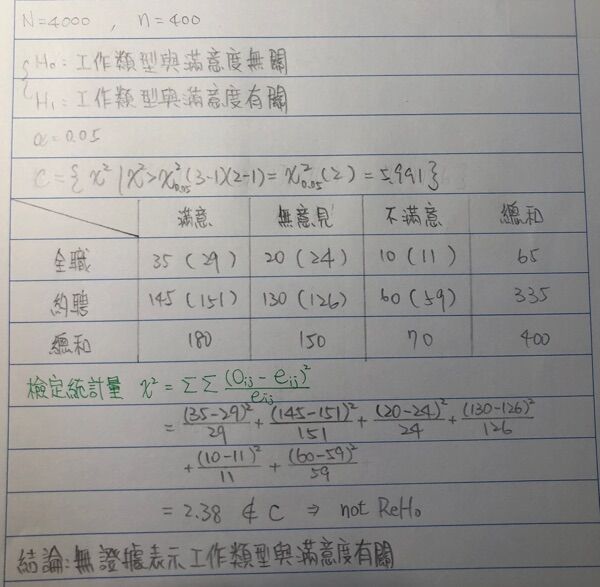 N=4000 , n=400
{ H₀:工作類型與滿意度無關
H₁:工作類型與滿意度有關
α=0.05
C={ χ² | χ²>χ²₀.₀₅(3-1)(2-1)=χ²₀.₀₅(2)=5.991}
滿意 無意見 不滿意 總和
全職 35 (29) 20 (24) 10 (11) 65
約聘 145 (151) 130 (126) 60 (59) 335
總和 180 150 70 400
檢定統計量 χ² = ΣΣ (Oij - eij)²/eij
= (35-29)²/29 + (145-151)²/151 + (20-24)²/24 + (130-126)²/126
+ (10-11)²/11 + (60-59)²/59
= 2.38 ∉ C ⇒ not ReH₀
結論:無證據表示工作類型與滿意度有關